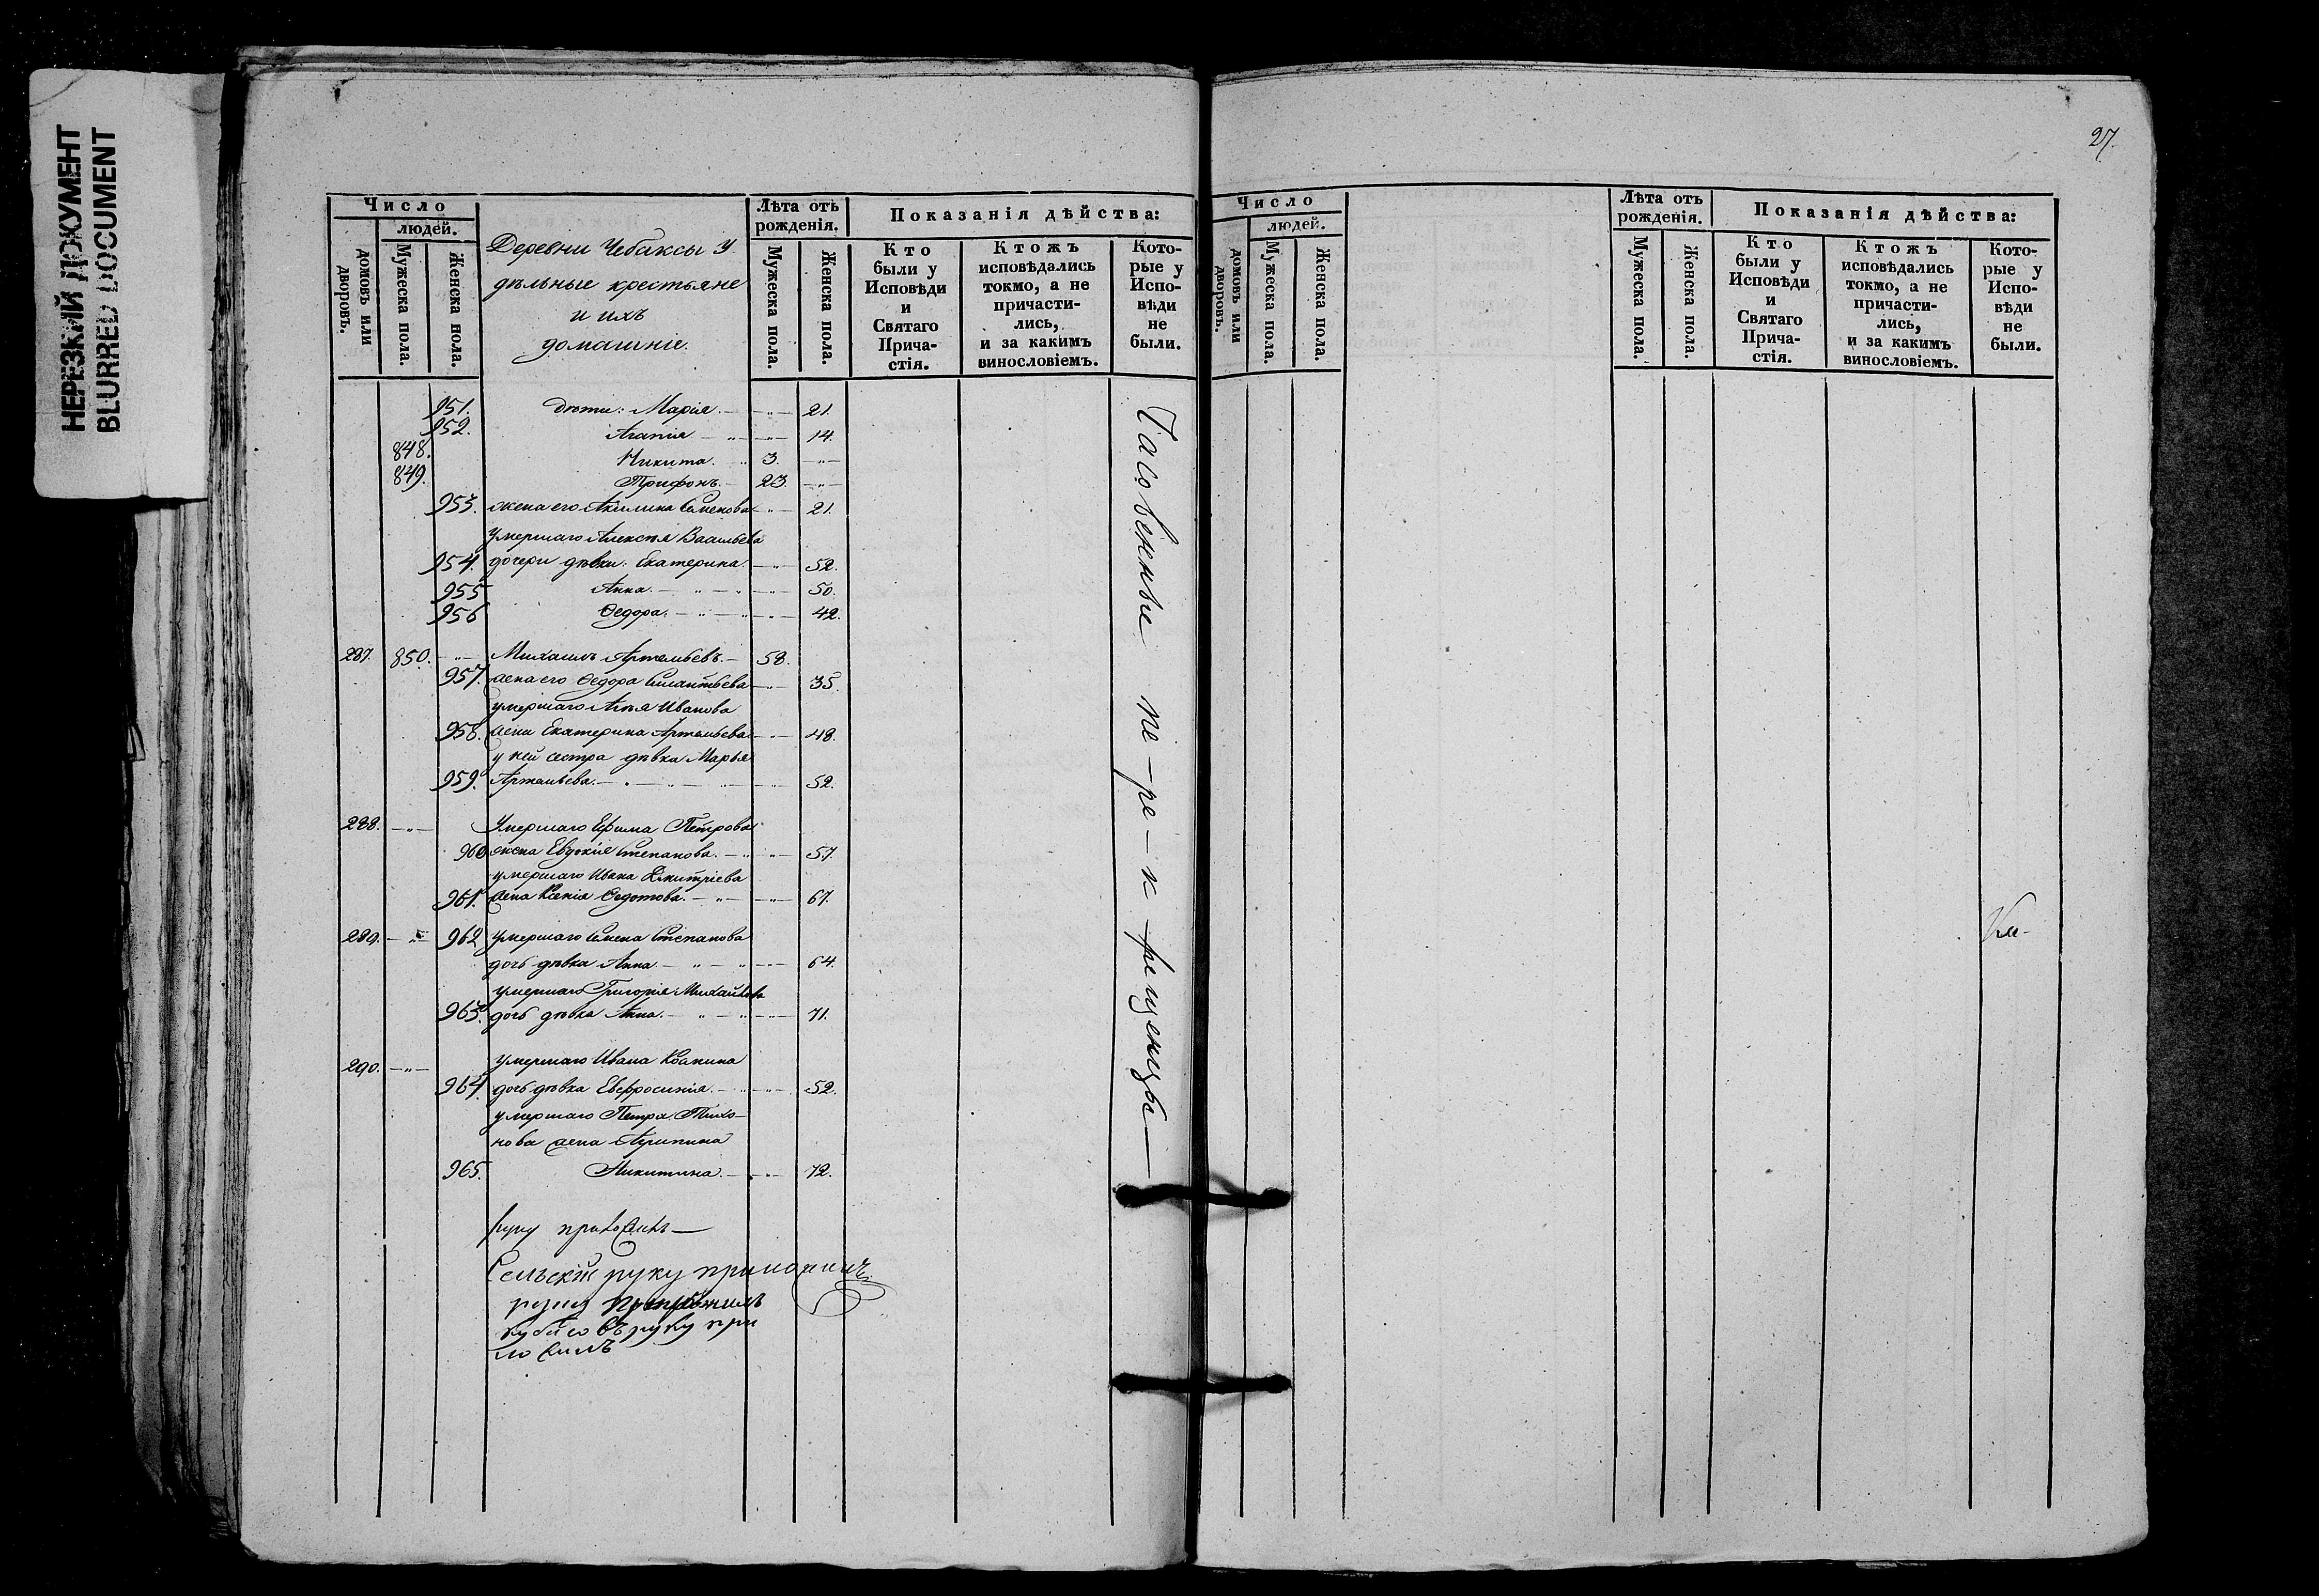 НЕРЕЗКИЙ ДОКУМЕНТ
BLURRED DOCUMENT
Число
людей.
домовъ или дворовъ.
Мужеска пола.
Женска пола.
Деревни Чебаксы У
дѣльные крестьяне
и ихъ
домашніе.
Лѣта отъ рожденія.
Мужеска пола.
Женска пола.
Показанія дѣйства:
Кто были у Исповѣди и Святаго Прича-стія.
Ктожъ исповѣдались токмо, а не причасти-лись, и за какимъ винословіемъ.
Кото-рые у Испо-вѣди не были.
951. дѣти: Марія. — „ — 21.
952. Агапія — „ — „ — 14.
848. Никита. „ 3. — „ —
849. Трифонъ. — 23. — „ —
953. жена его Акилина Семенова — „ — 21.
умершаго Алексѣя Васильева
954. дочери дѣвки: Екатерина. — „ — 52.
955 Анна. — „ — „ — „ — 50.
956 Ѳедора. — „ — „ — „ — 42.
287. 850. — „ — Михаилъ Артемьевъ. — 58.
957. жена его Ѳедора Силантьева — „ — 35.
умершаго Иванова
958. жена Екатерина Артемьева. — „ — 48.
у ней сестра дѣвка Марья
959. Артемьева. — „ — „ — „ — 52.
288. — „ — Умершаго Ефима Петрова
960 жена Евдокія Степанова. — „ — „ — 57.
умершаго Ивана Дмитріева
961. жена Ксенія Ѳедотова. — „ — — „ — 67.
289. — „ — 962 умершаго Семена Степанова
дочь дѣвка Анна — „ — „ — „ — 64.
умершаго Григорія Михайлова
963. дочь дѣвка Анна. — „ — „ — „ — 71.
290. — „ — умершаго Ивана
964. дочь дѣвка Евфросинія. — „ — „ — 52.
умершаго Петра Тихо-
нова жена Агрипина
965. Никитина. — „ — 72.
Часовенные пе-ре-к-рещенцы —
руку
Сельскій руку приложилъ.
руку при
ложилъ
27.
Число
людей.
домовъ или дворовъ.
Мужеска пола.
Женска пола.
Лѣта отъ рожденія.
Мужеска пола.
Женска пола.
Показанія дѣйства:
Кто были у Исповѣди и Святаго Прича-стія.
Ктожъ исповѣдались токмо, а не причасти-лись, и за какимъ винословіемъ.
Кото-рые у Испо-вѣди не были.